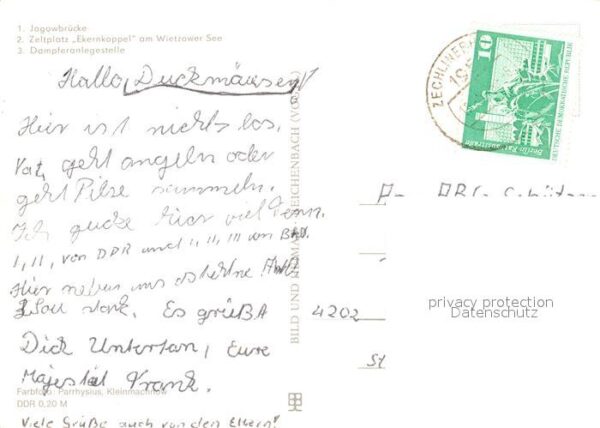 1. Jagowbrücke
2. Zeltplatz „Ekernkoppel" am Wietzower See
3. Dampferanlegestelle
Hallo, Duckmäuser!
Hier ist nichts los.
Vat. geht angeln oder
geht Pilze sammeln.
Ich gucke hier viel Fenn.
I, II, von DDR und I, II, III von BRD.
Hier neben uns
Es grüßt
Dich Untertan, Eure
Majestät Frank.
Viele Grüße auch von den Eltern!
Farbfoto: Parrhysius, Kleinmachnow
DDR 0,20 M
BILD UND HEIMAT REICHENBACH (VOGTL
ZECHLINERH
10
DEUTSCHE DEMOKRATISCHE REPUBLIK
Berlin Rathausstraße
An ABC-Schützen
4202
St
privacy protection
Datenschutz